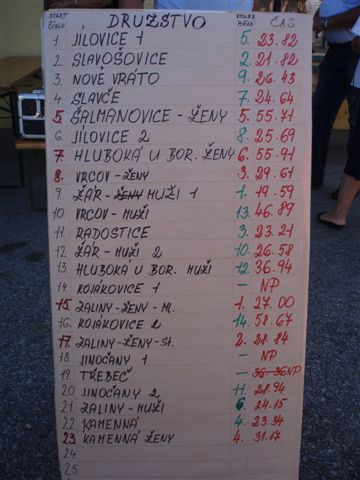 START ČÍSLO DRUŽSTVO VÝSLED. POŘADÍ ČAS
1. JÍLOVICE 1 5. 23.82
2. SLAVOŠOVICE 2. 21.82
3. NOVÉ VRÁTO 9. 26.43
4. SLAVČE 7. 24.64
5. ŠALMANOVICE - ŽENY 5. 55.71
6. JÍLOVICE 2 8. 25.69
7. HLUBOKÁ U BOR. ŽENY 6. 55.91
8. VRCOV - ŽENY 3. 29.61
9. ŽÁR - ŽENY MUŽI 1 1. 19.59
10. VRCOV - MUŽI 13. 46.89
11. RADOSTICE 3. 23.21
12. ŽÁR - MUŽI 2 10. 26.58
13. HLUBOKÁ U BOR. MUŽI 12. 36.94
14. KOJÁKOVICE 1 - NP
15. ŽALINY - ŽENY - ML. 1. 27.00
16. KOJÁKOVICE 2 14. 58.67
17. ŽALINY - ŽENY - St. 2. 28.84
18. JINOČANY 1 - NP
19. TŘEBEČ - 36.36 NP
20. JINOČANY 2 11. 28.94
21. ŽALINY - MUŽI 6. 24.15
22. KAMENNÁ 4. 23.34
23 KAMENNÁ ŽENY 4. 31.17
24.
25.